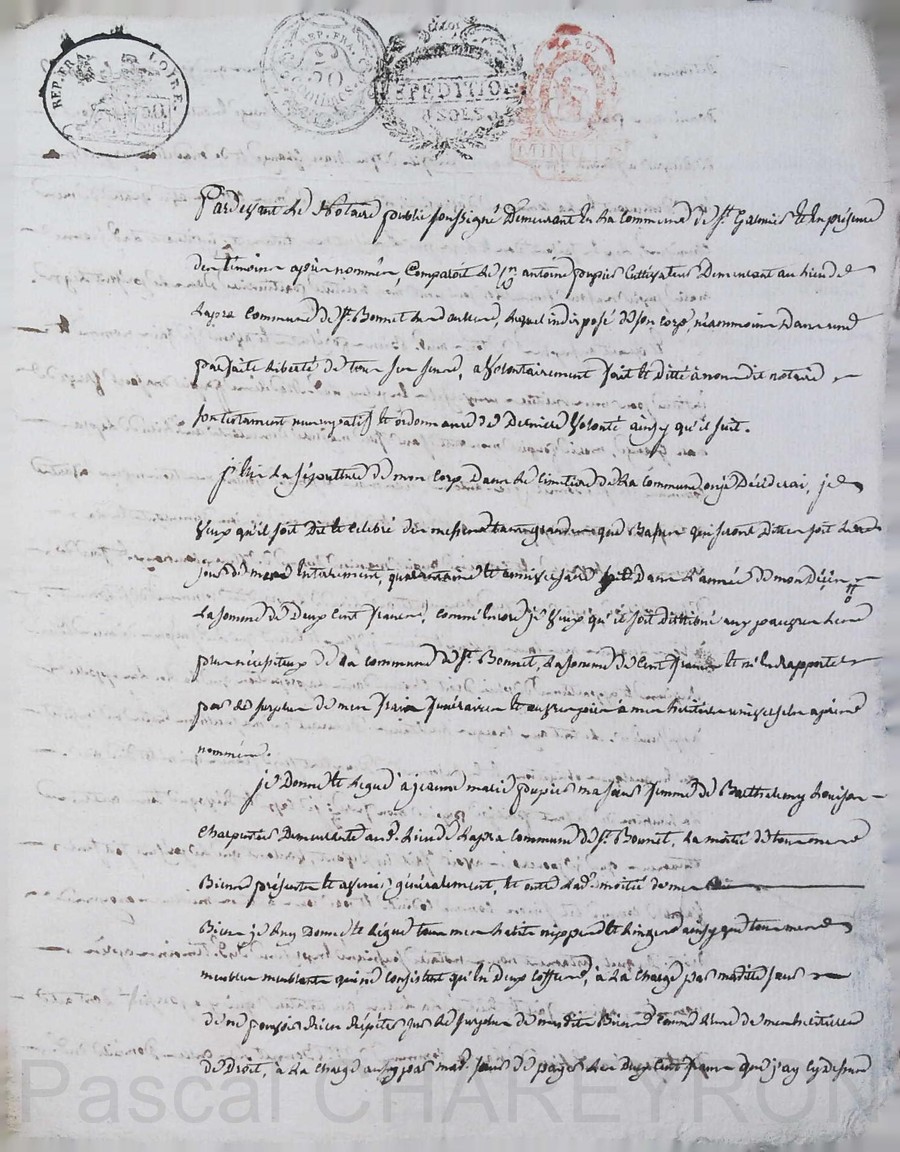 REP. FRA. LOIRE.
REP. FRA.
EXPEDITION
SOLS
LA LOI
MINUTE
Pardevant le Notaire public soussigné Demeurant En La Commune de St. Galmier Et En présence
des témoins après nommés, Comparoit le Cn antoine poupier Cultivateur Demeurant au Lieu de
Lapra Commune de St. Bonnet , Lequel indisposé de son corps néammoins Dans une
parfaite Liberté de tous ses sens, a Volontairement fait et Ditté à nous dit notaire
son testament nuncupatif et ordonnance de Derniere Volonté ainsy qu'il suit.
j' La sépulture de mon corps Dans le Cimetiere de La Commune ou je Décéderai, je
Veux qu'il soit Dit et Celebré des messes tant grandes que Basses qui seront Dittes soit Le
jour de mon Enterrement, quarantaine et anniversaire Dans L'année de mon Décès
La somme de Deux Cent francs, comme Encore je Veux qu'il soit distribué aux pauvres Les
plus nécessiteux de La commune de St. Bonnet, La somme de Cent francs Et m'En rapporte
pour le surplus de mes frais funéraires Et aux prieres à mes héritiers universels après
nommés.
je Donne Et Legue à jeanne marie poupier ma sœur femme de Barthelemy
Charpentier Demeurante aud. Lieu de Lapra Commune de St. Bonnet, La moitié de tous mes
Biens présents Et avenir généralement, Et outre Lad. moitié de mes
Biens je Luy Donne Et Légue tous mes habits nippes Et Linges ainsy que tous mes
meubles meublants qui ne consistent qu'En Deux Coffres, à La Charge par madite sœur
de ne pouvoir rien répéter sur Le surplus de mesdits Biens Comme L'une de mes héritieres
de Droit, à La Charge aussy par mad. sœur de payer Les Deux Cent francs que j'ay Cy Dessus
Pascal CHAREYRON